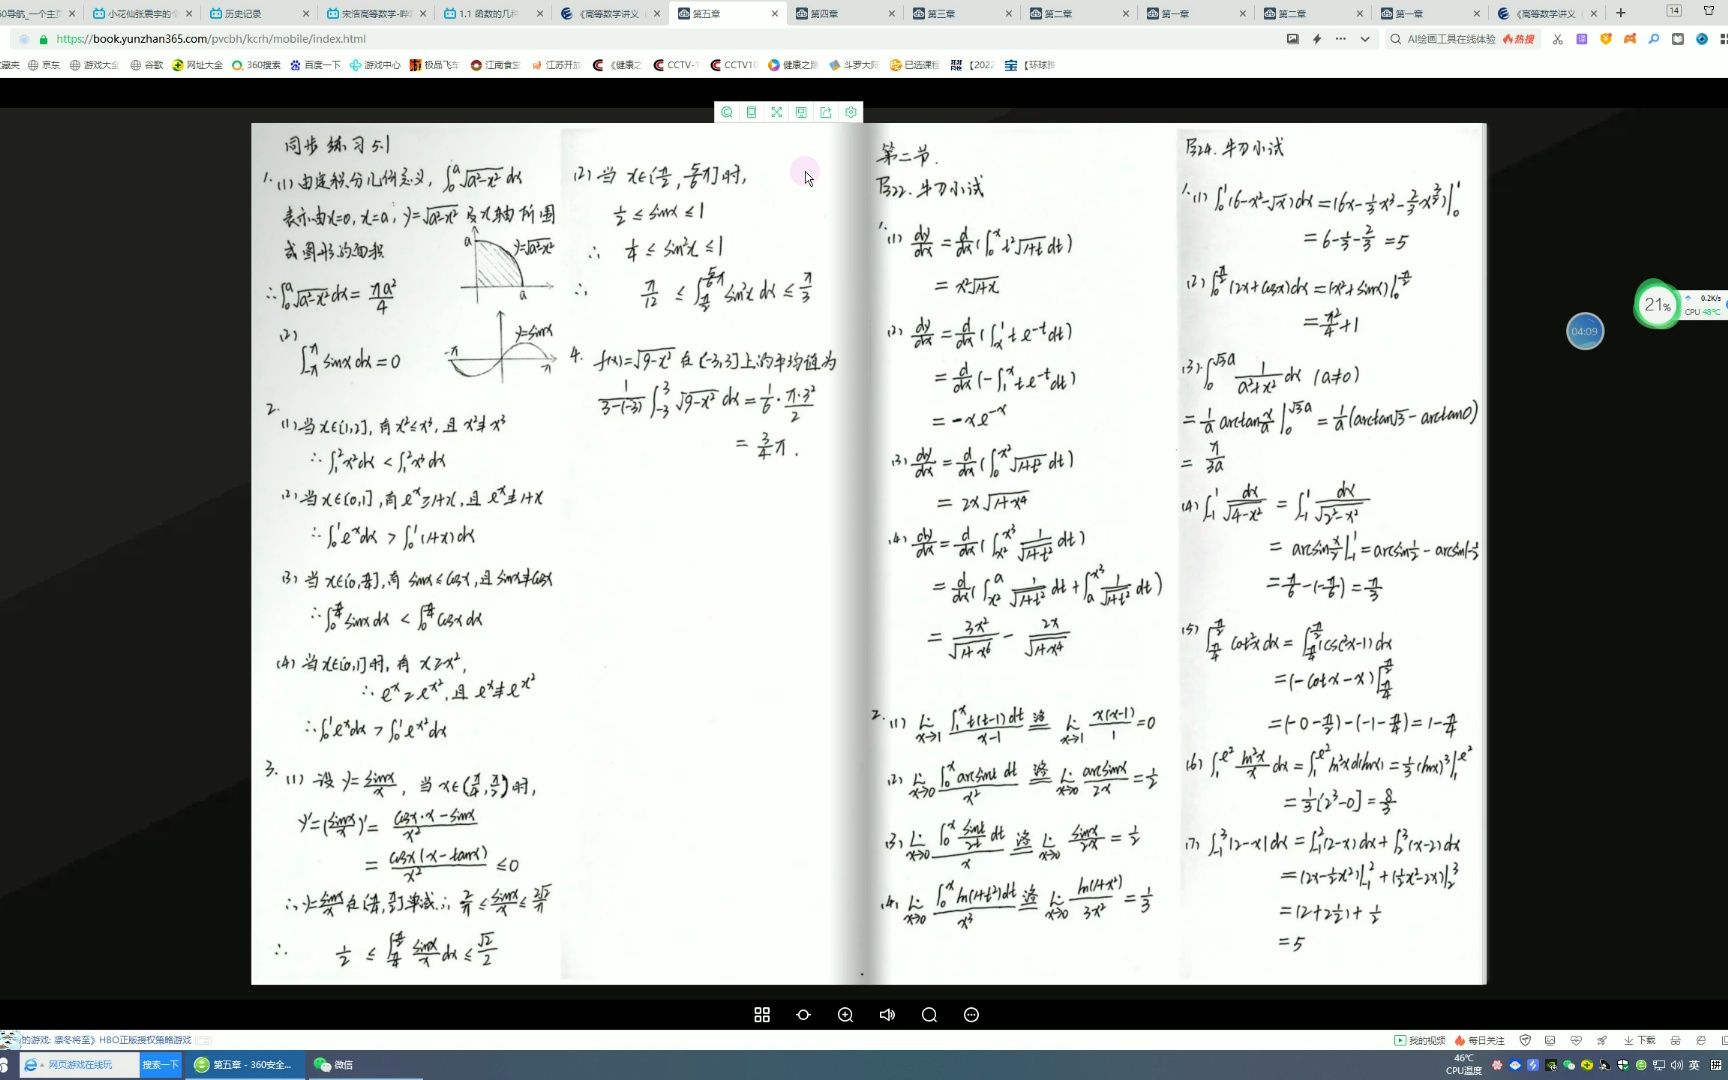 50导航_一个主页
小花仙张震宇的个
历史记录
宋浩高等数学-哔
1.1 函数的几种
《高等数学讲义
第五章
第四章
第三章
第二章
第一章
第二章
第一章
《高等数学讲义
14
https://book.yunzhan365.com/pvcbh/kcrh/mobile/index.html
AI绘画工具在线体验
热搜
京东
游戏大全
谷歌
网址大全
360搜索
百度一下
游戏中心
极品飞车
江南食堂
江苏开放
《健康之
CCTV-1
CCTV10
健康之路
斗罗大陆
已选课程
【2022
【环球搜
同步练习5.1
1. (1) 由定积分几何意义, ∫₀ᵃ√(a²-x²) dx
表示由x=0, x=a, y=√(a²-x²) 及x轴所围
成图形的面积
a
y=√(a²-x²)
a
∴∫₀ᵃ√(a²-x²)dx = πa²/4
(2)
∫_{-π}^{π} sinx dx = 0
y=sinx
-π
π
2.
(1) 当x∈[1,2], 有x²≤x³, 且x²≢x³
∴∫₁²x²dx < ∫₁²x³dx
(2) 当x∈[0,1], 有eˣ≥1+x, 且eˣ≢1+x
∴∫₀¹eˣdx > ∫₀¹(1+x)dx
(3) 当x∈[0,π/4], 有sinx≤cosx, 且sinx≢cosx
∴∫₀^{π/4}sinxdx < ∫₀^{π/4}cosxdx
(4) 当x∈[0,1]时, 有x≥x²,
∴eˣ≥e^{x²}, 且eˣ≢e^{x²}
∴∫₀¹eˣdx > ∫₀¹e^{x²}dx
3. (1) 设y=sinx/x, 当x∈(π/4,π/2)时,
y'=(sinx/x)'= (cosx·x-sinx)/x²
= cosx(x-tanx)/x² ≤0
∴y=sinx/x在[π/4,π/2]单减∴2/π≤sinx/x≤2√2/π
∴ 1/2 ≤ ∫_{π/4}^{π/2} sinx/x dx ≤ √2/2
(2) 当x∈[π/2, 5/6π]时,
1/2≤sinx≤1
∴ 1/4≤sin²x≤1
∴ π/12 ≤ ∫_{π/2}^{5/6π} sin²x dx ≤ π/3
4. f(x)=√(9-x²)在[-3,3]上的平均值为
1/(3-(-3)) ∫_{-3}^{3} √(9-x²) dx = 1/6·π·3²/2
= 3/4 π.
第二节.
P322. 牛刀小试
1. (1) dy/dx = d/dx(∫₀ˣ t²√(1+t) dt)
= x²√(1+x)
(2) dy/dx = d/dx(∫ₓ¹ te^{-t}dt)
= d/dx(-∫₁ˣ te^{-t}dt)
= -xe^{-x}
(3) dy/dx = d/dx(∫₀^{x²}√(1+t²) dt)
= 2x√(1+x⁴)
(4) dy/dx = d/dx(∫_{x²}^{x³} 1/√(1+t²) dt)
= d/dx(∫_{x²}^{a} 1/√(1+t²) dt+∫_{a}^{x³} 1/√(1+t²) dt)
= 3x²/√(1+x⁶) - 2x/√(1+x⁴)
2. (1) lim_{x→1} ∫₁ˣt(t-1)dt/(x-1) 洛= lim_{x→1} x(x-1)/1=0
(2) lim_{x→0} ∫₀ˣarcsint dt/x² 洛= lim_{x→0} arcsinx/2x=1/2
(3) lim_{x→0} ∫₀ˣ sint/2t dt/x 洛= lim_{x→0} sinx/2x=1/2
(4) lim_{x→0} ∫₀ˣln(1+t²)dt/x³ 洛= lim_{x→0} ln(1+x²)/3x²=1/3
P324. 牛刀小试
1. (1) ∫₀¹(6-x²-√x)dx=(6x-1/3x³-2/3x^{3/2})|₀¹
= 6-1/3-2/3=5
(2) ∫₀^{π/2}(2x+cosx)dx=(x²+sinx)|₀^{π/2}
= π²/4+1
(3) ∫₀^{√3a} 1/(a²+x²) dx (a≠0)
= 1/a arctan x/a |₀^{√3a} = 1/a(arctan√3-arctan0)
= π/3a
(4) ∫_{-1}^{1} dx/√(4-x²) = ∫_{-1}^{1} dx/√(2²-x²)
= arcsin x/2|_{-1}^{1}=arcsin1/2-arcsin(-1/2
= π/6-(-π/6)=π/3
(5) ∫_{π/4}^{π/2} cot²xdx = ∫_{π/4}^{π/2}(csc²x-1)dx
= (-cotx-x)|_{π/4}^{π/2}
= (-0-π/2)-(-1-π/4)=1-π/4
(6) ∫₁^{e²} ln²x/x dx = ∫₁^{e²}ln²xd(lnx)=1/3(lnx)³|₁^{e²}
= 1/3[2³-0]=8/3
(7) ∫_{-1}^{3}|2-x|dx=∫_{-1}^{2}(2-x)dx+∫₂³(x-2)dx
= (2x-1/2x²)|_{-1}^{2}+(1/2x²-2x)|₂³
= (2+2 1/2)+1/2
= 5
21%
0.2K/s
CPU 48℃
04:09
的游戏: 凛冬将至》HBO正版授权策略游戏
我的视频
每日关注
下载
网页游戏在线玩
搜索一下
第五章 - 360安全...
微信
46℃
CPU温度
英